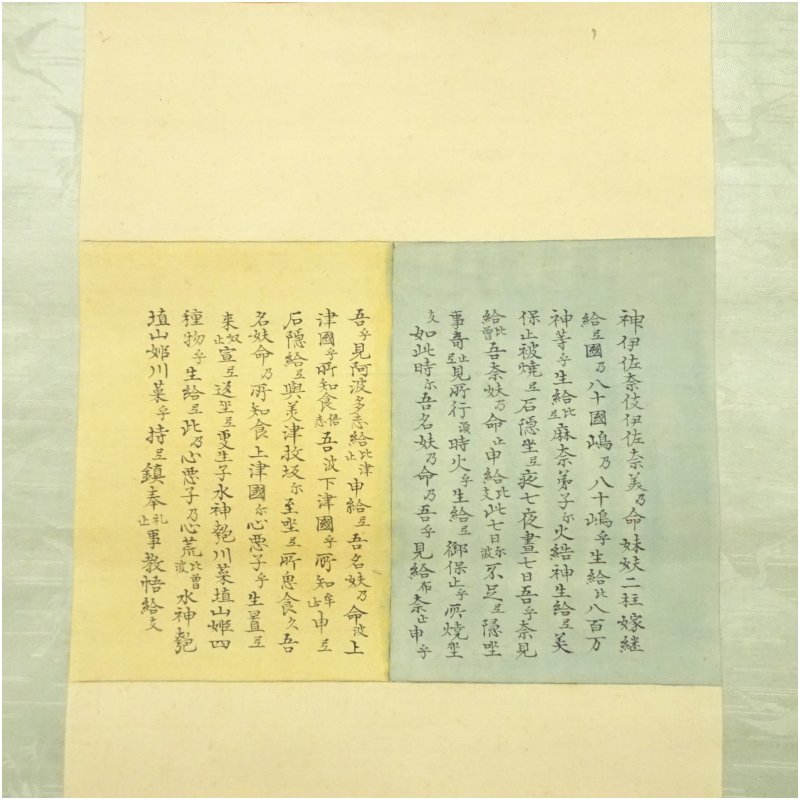 神伊佐奈伎伊佐奈美乃命妹妋二柱嫁継
給弖國乃八十國嶋乃八十嶋乎生給比八百万
神等乎生給比弖麻奈弟子尓火結神生給弖美
保止被焼弖石隠坐弖夜七夜晝七日吾乎奈見
給比曽吾奈妋乃命止申給比支此七日尓波不足弖隠坐
事奇止弖見所行須時火乎生給弖御保止乎所焼坐
支如此時尓吾名妋乃命乃吾乎見給布奈止申乎
吾乎見阿波多志給比津止申給弖吾名妋乃命波上
津國乎所知食倍志吾波下津國乎所知牟止申弖
石隠給弖與美津枚坂尓至坐弖所思食久吾
名妋命乃所知食上津國尓心悪子乎生置弖
来奴止宣弖返坐弖更生子水神匏川菜埴山姫四
種物乎生給弖此乃心悪子乃心荒比曽波水神匏
埴山姫川菜乎持弖鎮奉礼止事教悟給支